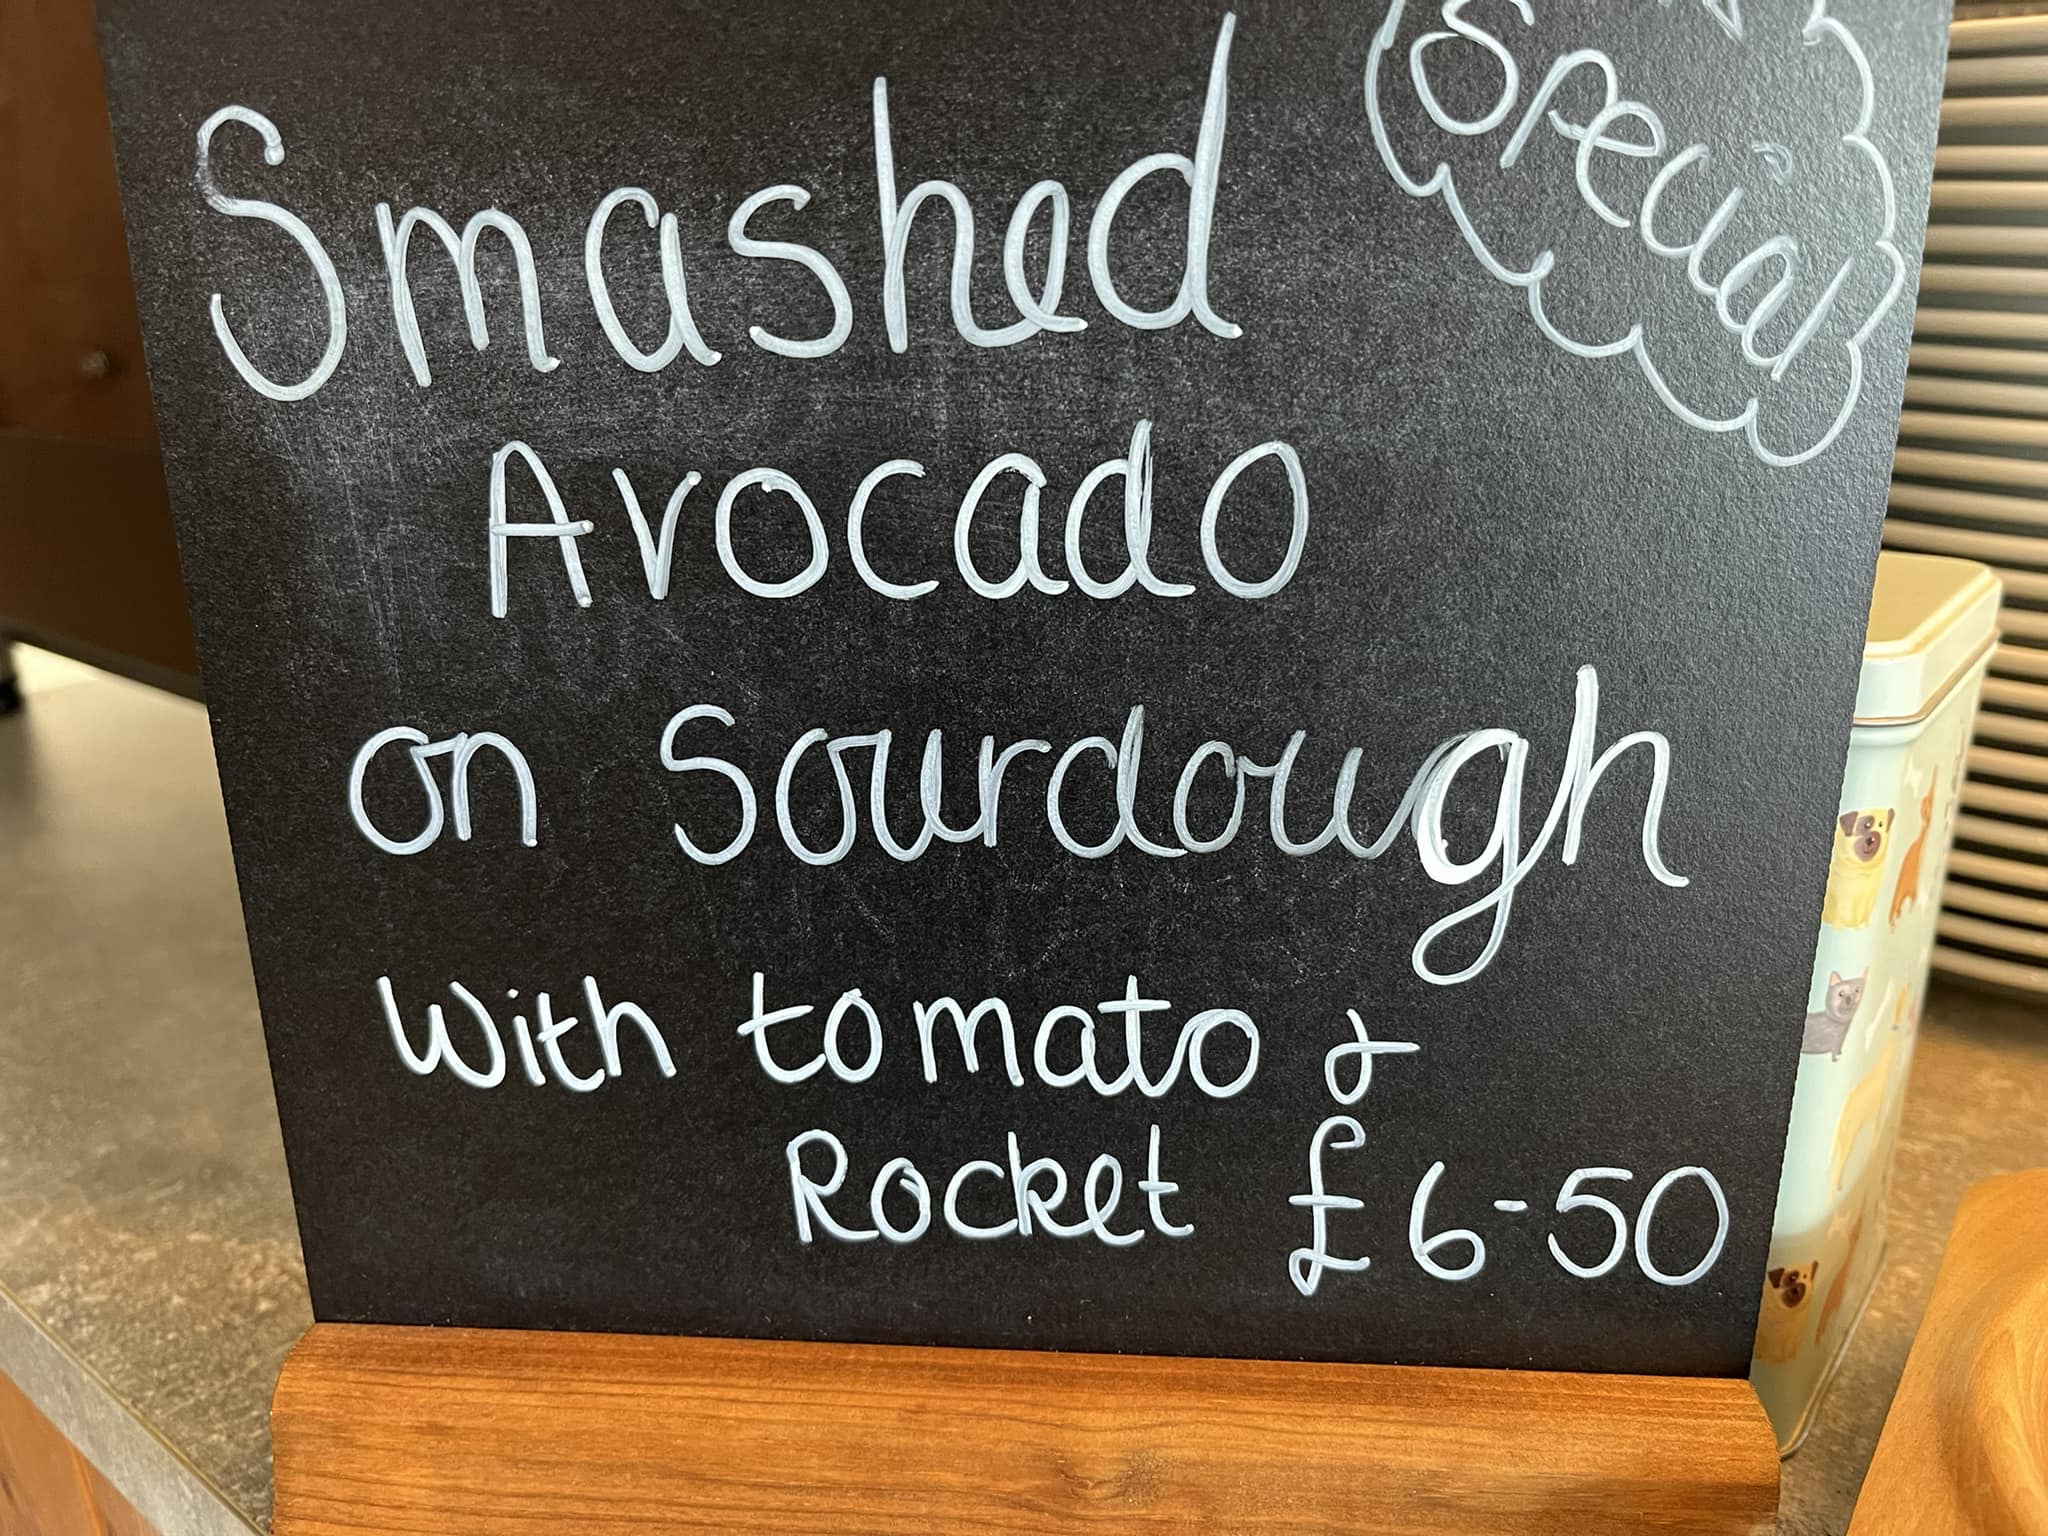 Special
Smashed
Avocado
on Sourdough
With tomato &
Rocket £6-50